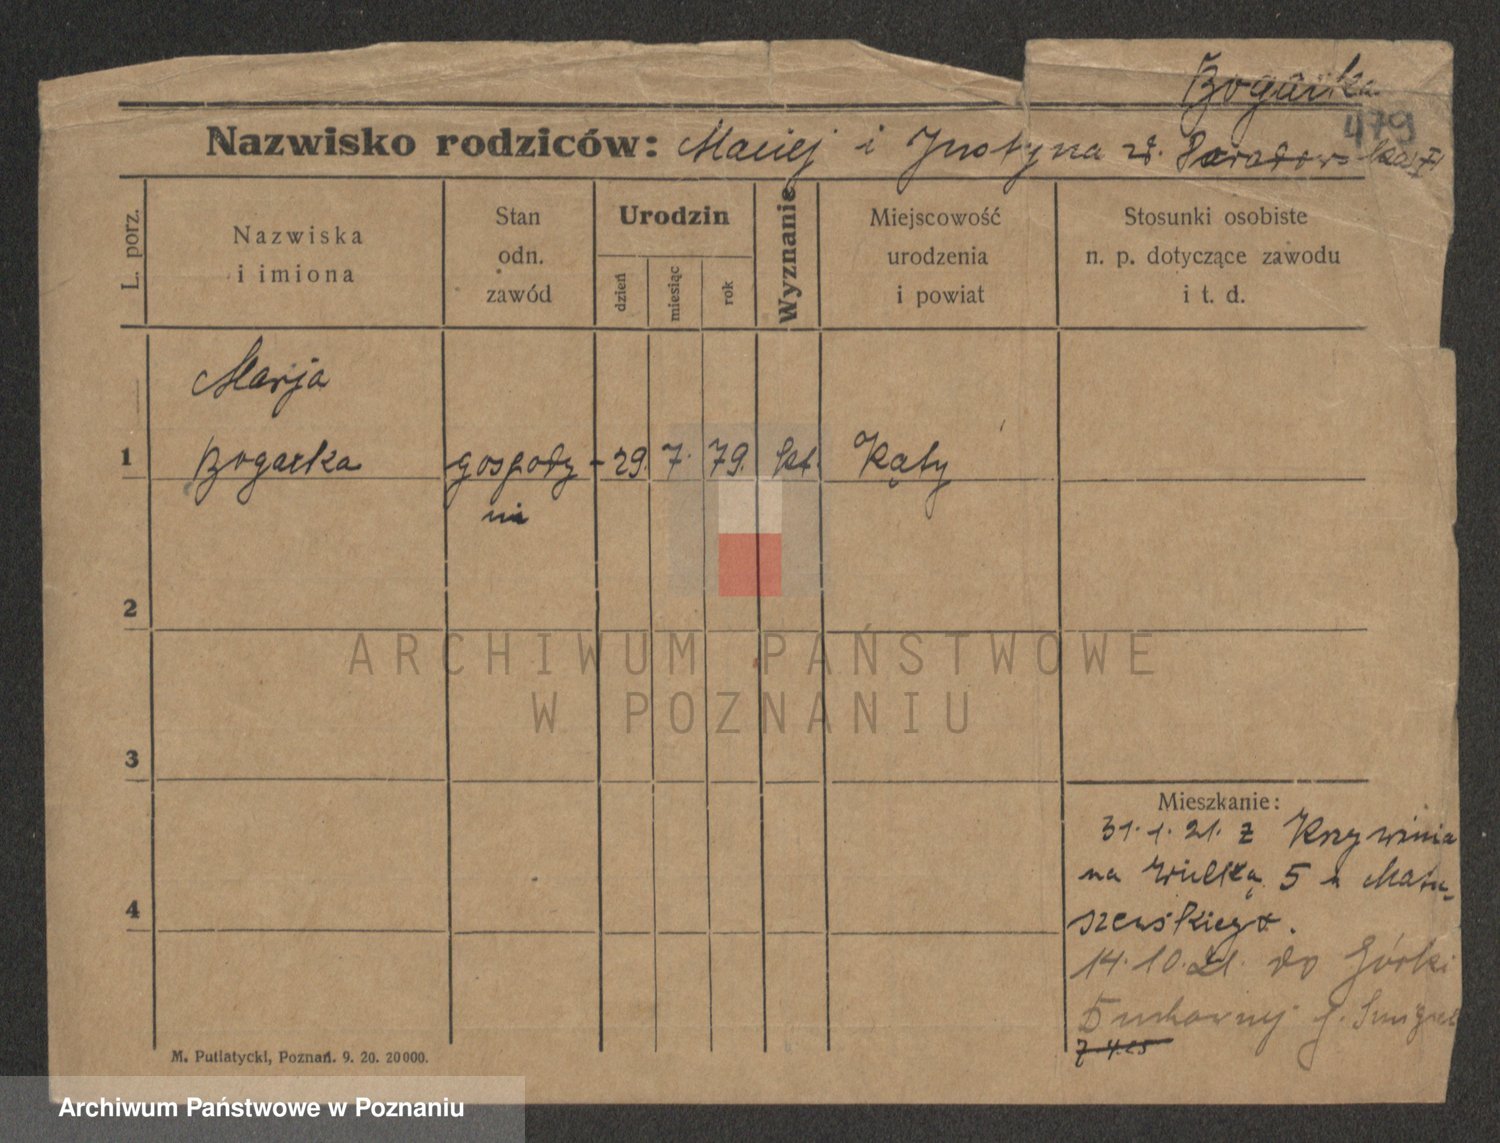 Bogacka
479
Nazwisko rodziców: Maciej i Justyna
L. porz.
Nazwiska
i imiona
Stan
odn.
zawód
Urodzin
dzień
miesiąc
rok
Wyznanie
Miejscowość
urodzenia
i powiat
Stosunki osobiste
n. p. dotyczące zawodu
i t. d.
Marja
1 Bogacka gospody- 29. 7. 79. kt. Kąty
ni
2
3
4
Mieszkanie:
31. 1. 21. z Krzywinia
na Wielką 5 u Matu-
szewskiego.
14. 10. 21. do Górki
Duchownej
7.4.25
M. Putiatycki, Poznań. 9. 20. 20000.
ARCHIWUM PAŃSTWOWE
W POZNANIU
Archiwum Państwowe w Poznaniu